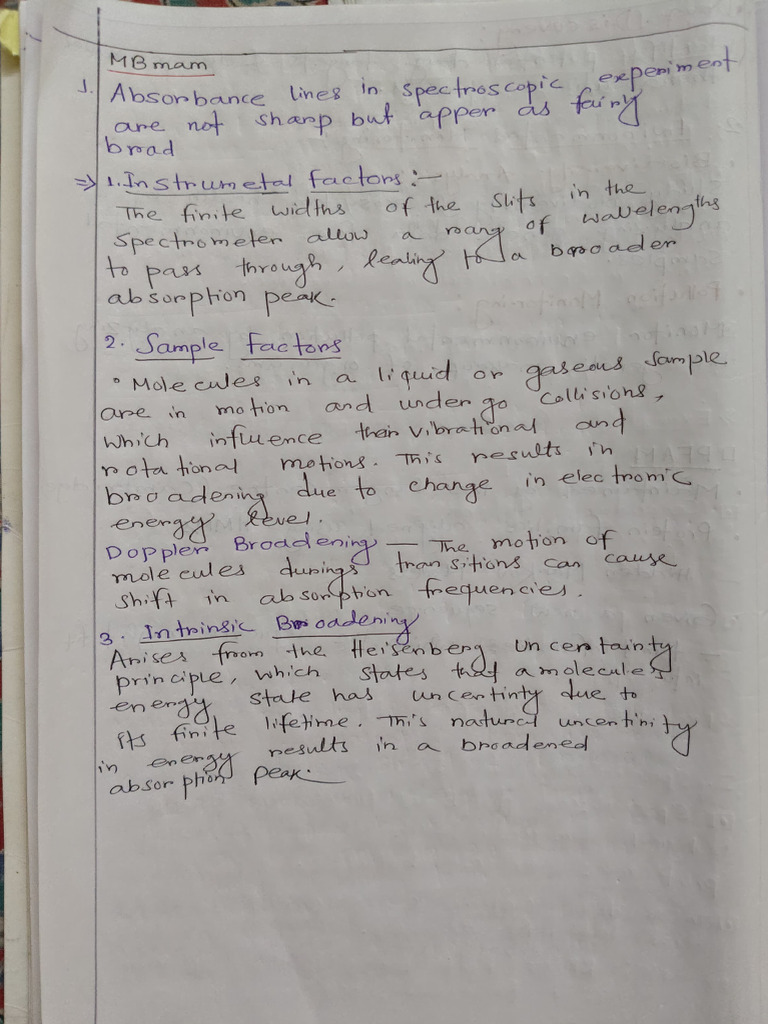 MB mam
1. Absorbance lines in spectroscopic experiment
are not sharp but apper as fairy
broad
⇒ 1. Instrumetal factors :—
The finite widths of the slits in the
spectrometer allow a rang of wavelengths
to pass through, lealing to a broader
absorption peak.
2. Sample Factors
• Molecules in a liquid or gaseous sample
are in motion and undergo collisions,
which influence their vibrational and
rotational motions. This results in
broadening due to change in electronic
energy level.
Doppler Broadening — The motion of
molecules durings transitions can cause
shift in absorption frequencies.
3. Intrinsic Broadening
Arises from the Heisenberg Uncertainty
principle, which states that a molecules
energy state has uncertinty due to
its finite lifetime. This natural uncertinity
in energy results in a broadened
absorption peak.